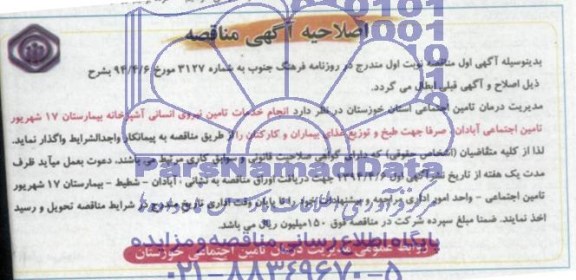 اصلاحیه آگهی مناقصه
بدینوسیله آگهی اول مناقصه نوبت اول مندرج در روزنامه فرهنگ جنوب به شماره ۳۱۲۷ مورخ ۹۴/۴/۶ بشرح
ذیل اصلاح و آگهی قبلی ابطال می گردد.
مدیریت درمان تامین اجتماعی استان خوزستان در نظر دارد انجام خدمات تامین نیروی انسانی آشپزخانه بیمارستان ۱۷ شهریور
تامین اجتماعی آبادان صرفا جهت طبخ و توزیع غذای بیماران و کارکنان را از طریق مناقصه به پیمانکار واجدالشرایط واگذار نماید.
لذا از کلیه متقاضیان (اشخاص حقوقی) که دارای گواهی صلاحیت قانونی و سوابق کاری مرتبط می باشند، دعوت بعمل میآید ظرف
مدت یک هفته از تاریخ نشر آگهی اول جهت دریافت اوراق مناقصه به نشانی : آبادان - شطیط - بیمارستان ۱۷ شهریور
تامین اجتماعی - واحد امور اداری مراجعه و پیشنهادات خود را تا پایان وقت اداری تاریخ مندرج در شرایط مناقصه تحویل و رسید
اخذ نمایند. ضمنا مبلغ سپرده شرکت در مناقصه فوق ۱۵۰ میلیون ریال می باشد.
روابط عمومی مدیریت درمان تامین اجتماعی خوزستان
ParsNamadData
پایگاه اطلاع رسانی مناقصه و مزایده
۰۲۱-۸۸۳۴۹۶۷۰-۵